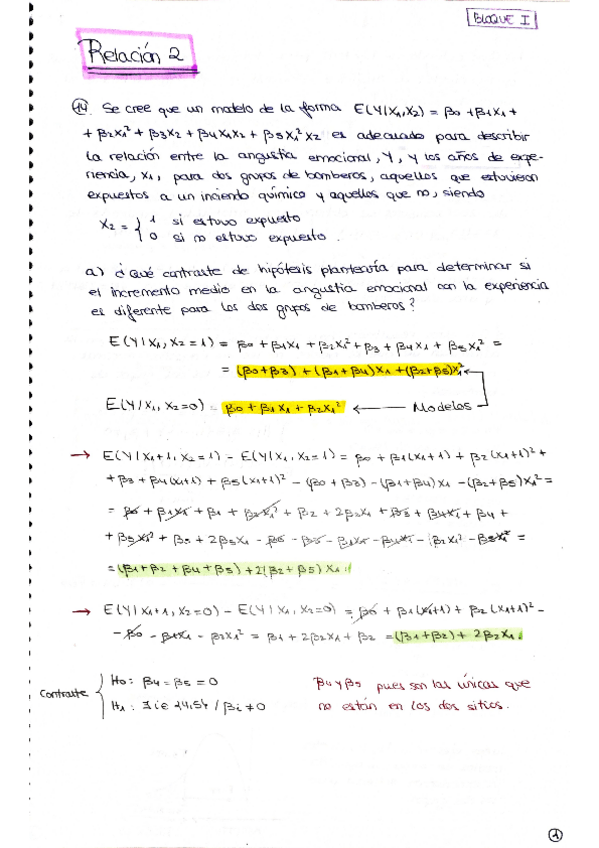 BLOQUE I
Relación 2
14. Se cree que un modelo de la forma E(Y/X₁,X₂) = β₀ + β₁X₁ +
+ β₂X₁² + β₃X₂ + β₄X₁X₂ + β₅X₁²X₂ es adecuado para describir
la relación entre la angustia emocional, Y, y los años de expe-
riencia, X₁, para dos grupos de bomberos, aquellos que estuvieron
expuestos a un incendio químico y aquellos que no, siendo
X₂ = { 1 si estuvo expuesto
0 si no estuvo expuesto.
a) ¿Qué contraste de hipótesis plantearía para determinar si
el incremento medio en la angustia emocional con la experiencia
es diferente para los dos grupos de bomberos?
E(Y/X₁, X₂=1) = β₀ + β₁X₁ + β₂X₁² + β₃ + β₄X₁ + β₅X₁² =
= (β₀+β₃) + (β₁+β₄)X₁ + (β₂+β₅)X₁²
E(Y/X₁, X₂=0) = β₀ + β₁X₁ + β₂X₁² ← Modelos
→ E(Y/X₁+1, X₂=1) - E(Y/X₁, X₂=1) = β₀ + β₁(X₁+1) + β₂(X₁+1)² +
+ β₃ + β₄(X₁+1) + β₅(X₁+1)² - (β₀+β₃) - (β₁+β₄)X₁ - (β₂+β₅)X₁² =
= β₀ + β₁X₁ + β₁ + β₂X₁² + β₂ + 2β₂X₁ + β₃ + β₄X₁ + β₄ +
+ β₅X₁² + β₅ + 2β₅X₁ - β₀ - β₃ - β₁X₁ - β₄X₁ - β₂X₁² - β₅X₁² =
= (β₁+β₂+β₄+β₅) + 2(β₂+β₅)X₁.
→ E(Y/X₁+1, X₂=0) - E(Y/X₁, X₂=0) = β₀ + β₁(X₁+1) + β₂(X₁+1)² -
- β₀ - β₁X₁ - β₂X₁² = β₁ + 2β₂X₁ + β₂ = (β₁+β₂) + 2β₂X₁.
Contraste { H₀: β₄ = β₅ = 0
H₁: ∃ i ∈ {4,5} / βᵢ ≠ 0
β₄ y β₅ pues son las únicas que
no están en los dos sitios.
1